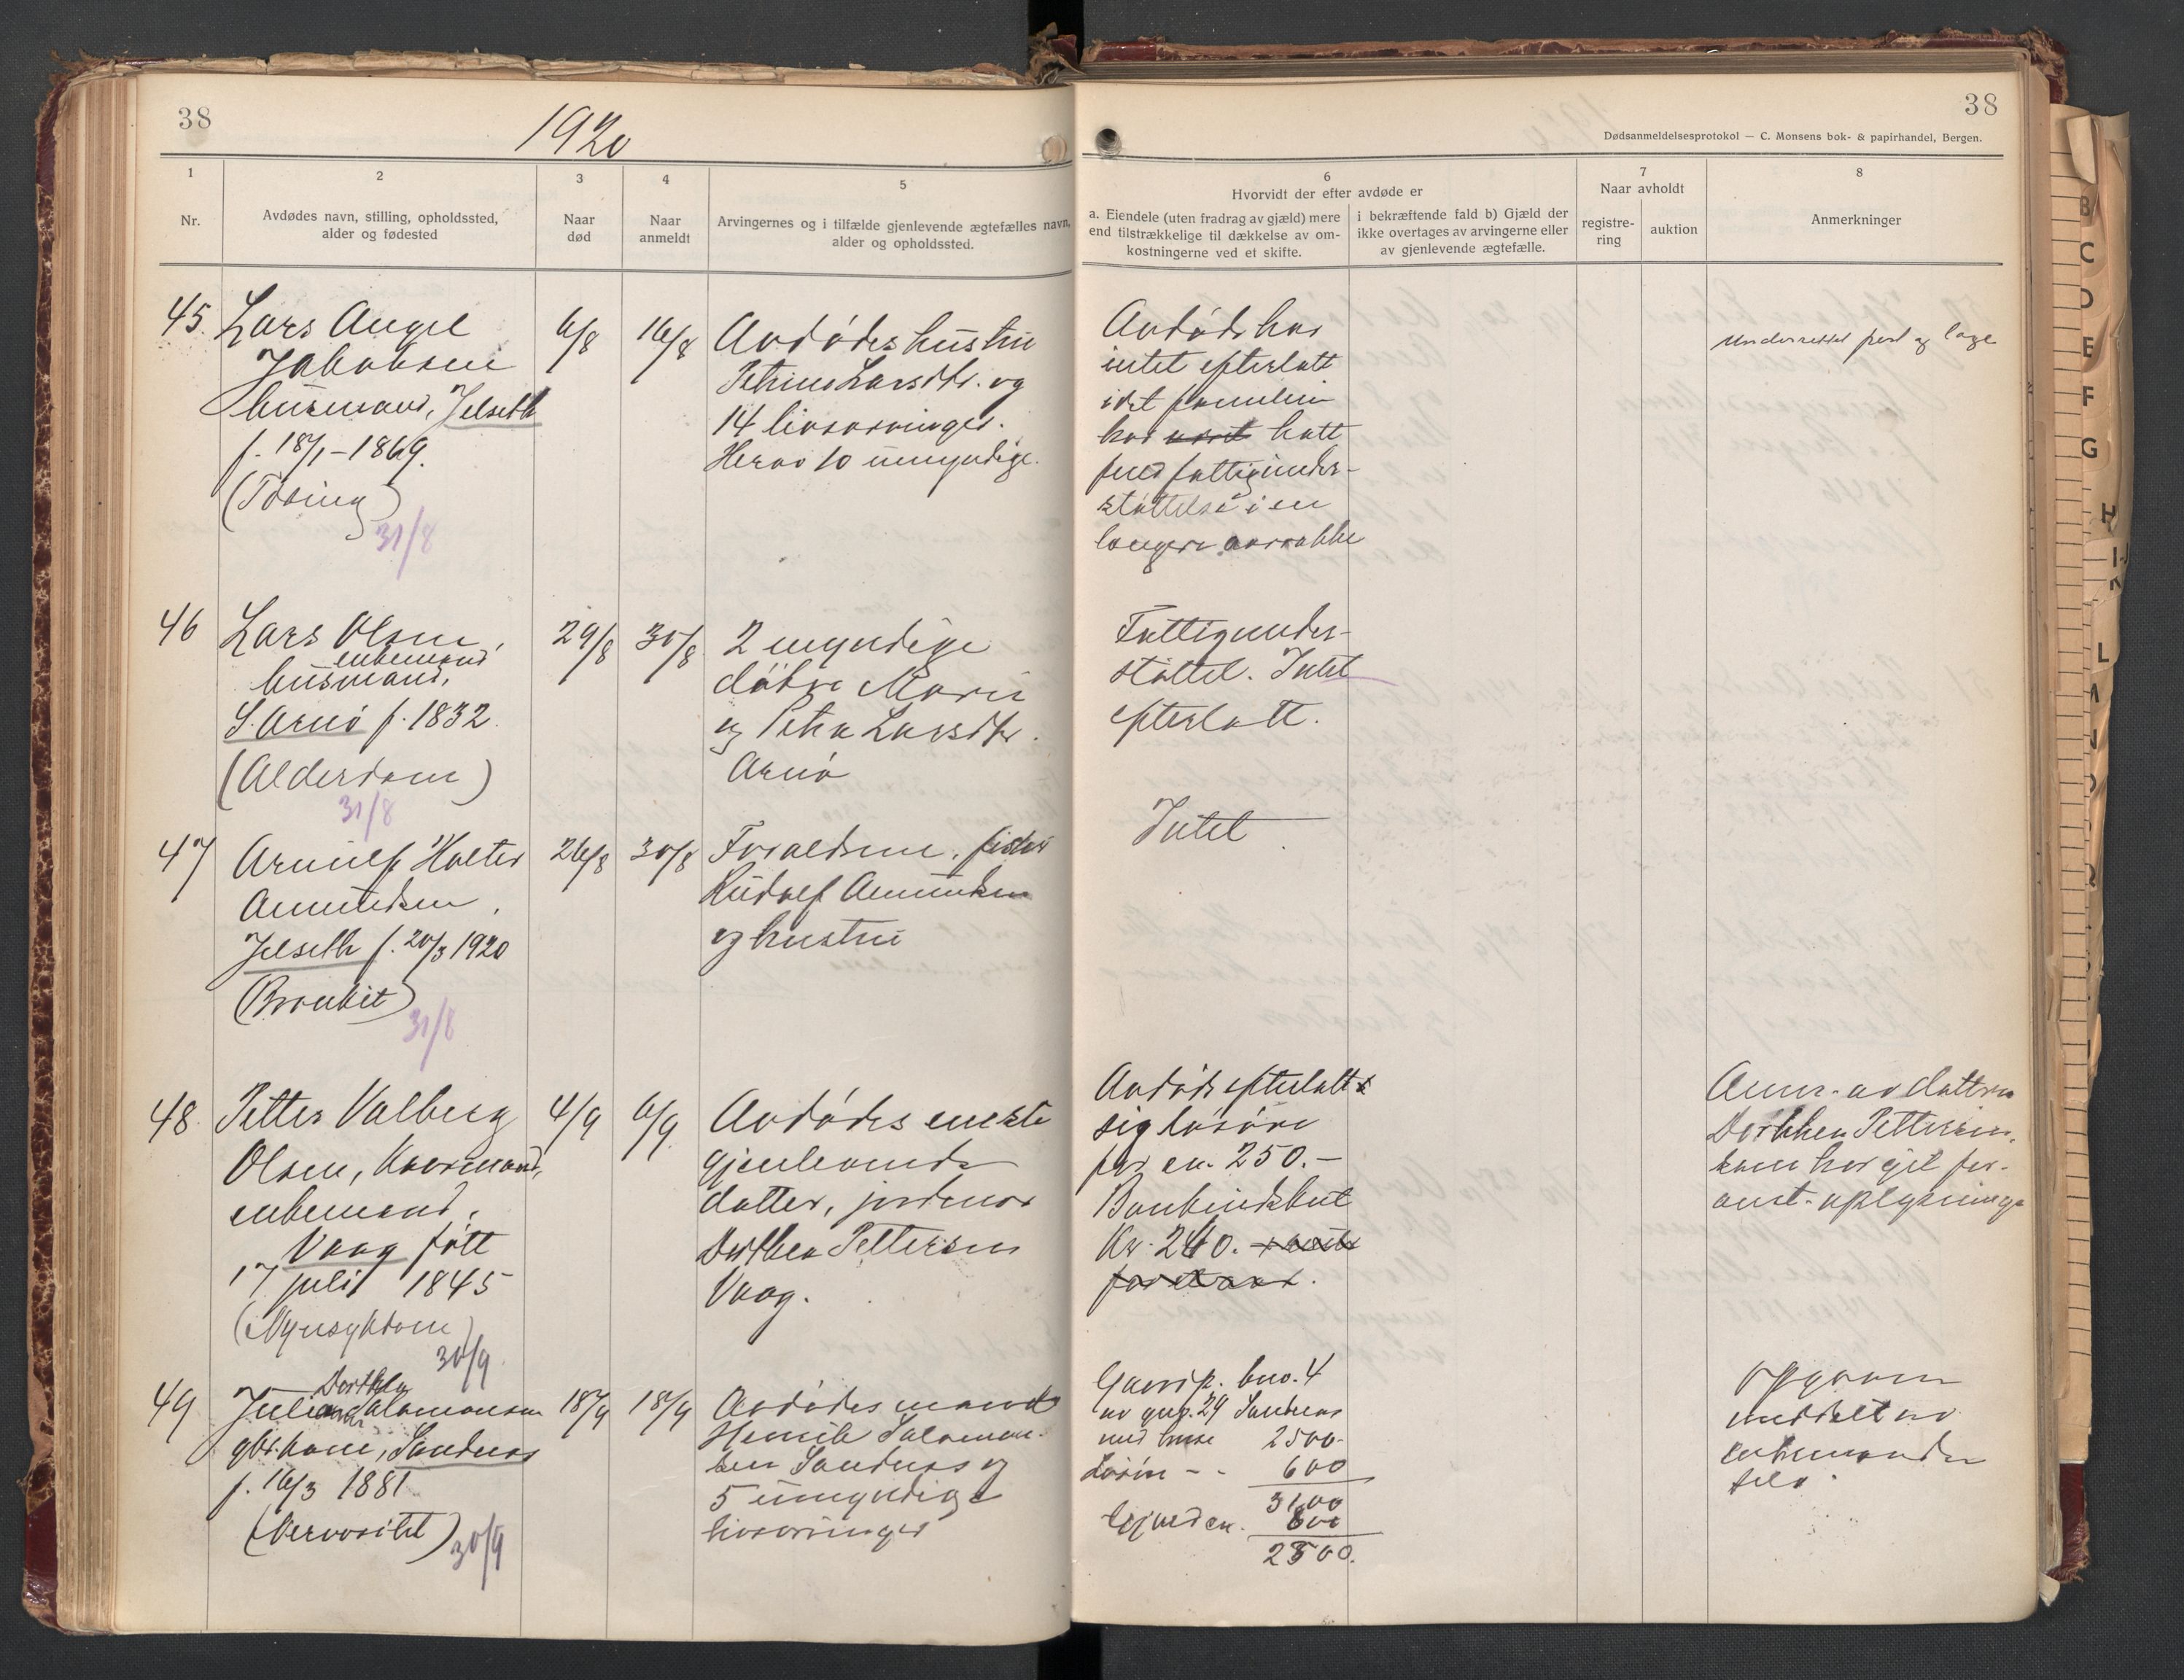 38
1920
38
Dødsanmeldelsesprotokol — C. Monsens bok- & papirhandel, Bergen.
1
Nr.
2
Avdødes navn, stilling, opholdssted,
alder og fødested
3
Naar
død
4
Naar
anmeldt
5
Arvingernes og i tilfælde gjenlevende ægtefælles navn,
alder og opholdssted.
6
Hvorvidt der efter avdøde er
a. Eiendele (uten fradrag av gjæld) mere
end tilstrækkelige til dækkelse av om-
kostningerne ved et skifte.
i bekræftende fald b) Gjæld der
ikke overtages av arvingerne eller
av gjenlevende ægtefælle.
7
Naar avholdt
registre-
ring
auktion
8
Anmerkninger
45. Lars Angel
Jakobsen
husmand, Jelseth
f. 18/1-1869.
(Tæring)
31/8
6/8
16/8
Avdødes hustru
Petrine Larsdtr. og
14 livsarvinger.
Herav 10 umyndige.
Avdøde har
intet efterlatt
idet familien
har hatt
fuld fattigunder-
støttelse i en
længere aarrække
46 Lars Olsen,
enkemand
husmand,
S. Arnø f. 1832.
(Alderdom)
31/8
29/8
30/8
2 myndige
døtre Marie
og Petra Larsdtr.
Arnø
Fattigunder-
støttet. Intet
efterlatt.
47 Arnulf Halter
Amundsen,
Jelseth f. 20/3 1920
(Bronkit)
31/8
26/8
30/8
Forældrene, fisker
Rudolf Amundsen
og hustru
Intet
48. Petter Valberg
Olsen, Kaarmand,
enkemand,
Vaag født
17 juli 1845
(Nyresykdom)
30/9
4/9
6/9
Avdødes eneste
gjenlevende
datter, jordmor
Dorthea Pettersen
Vaag.
Avdøde efterlatt
sig løsøre
for ca. 250.-
Bankindskut
Kr. 240.
Anm. av datteren
Dorthea Pettersen,
som har git for-
anst. oplysninger
49 Dorthea
Juliane Salomonsen
gbr.kone, Sandnes
f. 16/3 1881
(Nervøsitet)
30/9
18/9
18/9
Avdødes mand
Henrik Salomon-
sen Sandnes og
5 umyndige
livsarvinger
Gaarsp. bno. 4
av gno. 29 Sandnes
med huse 2500-
Løsøre - - 600
3100
Gjæld ca. 600
2500.
Opgaven
meddelt av
enkemanden
selv.